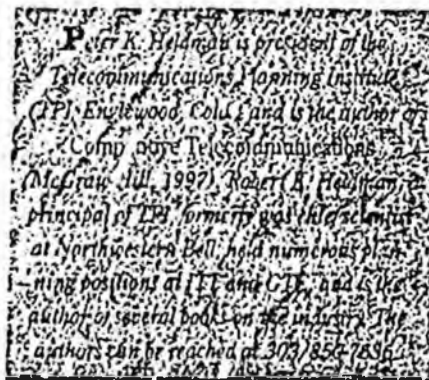 Peter K. Heldman is president of the
Telecommunications Planning Institute
(TPI, Englewood, Colo.) and is the author of
Competitive Telecommunications
(McGraw-Hill, 1997). Robert K. Heldman, a
principal of TPI, formerly was chief scientist
at Northwestern Bell, held numerous plan-
ning positions at ITT and GTE, and is the
author of several books on the industry. The
authors can be reached at 303/